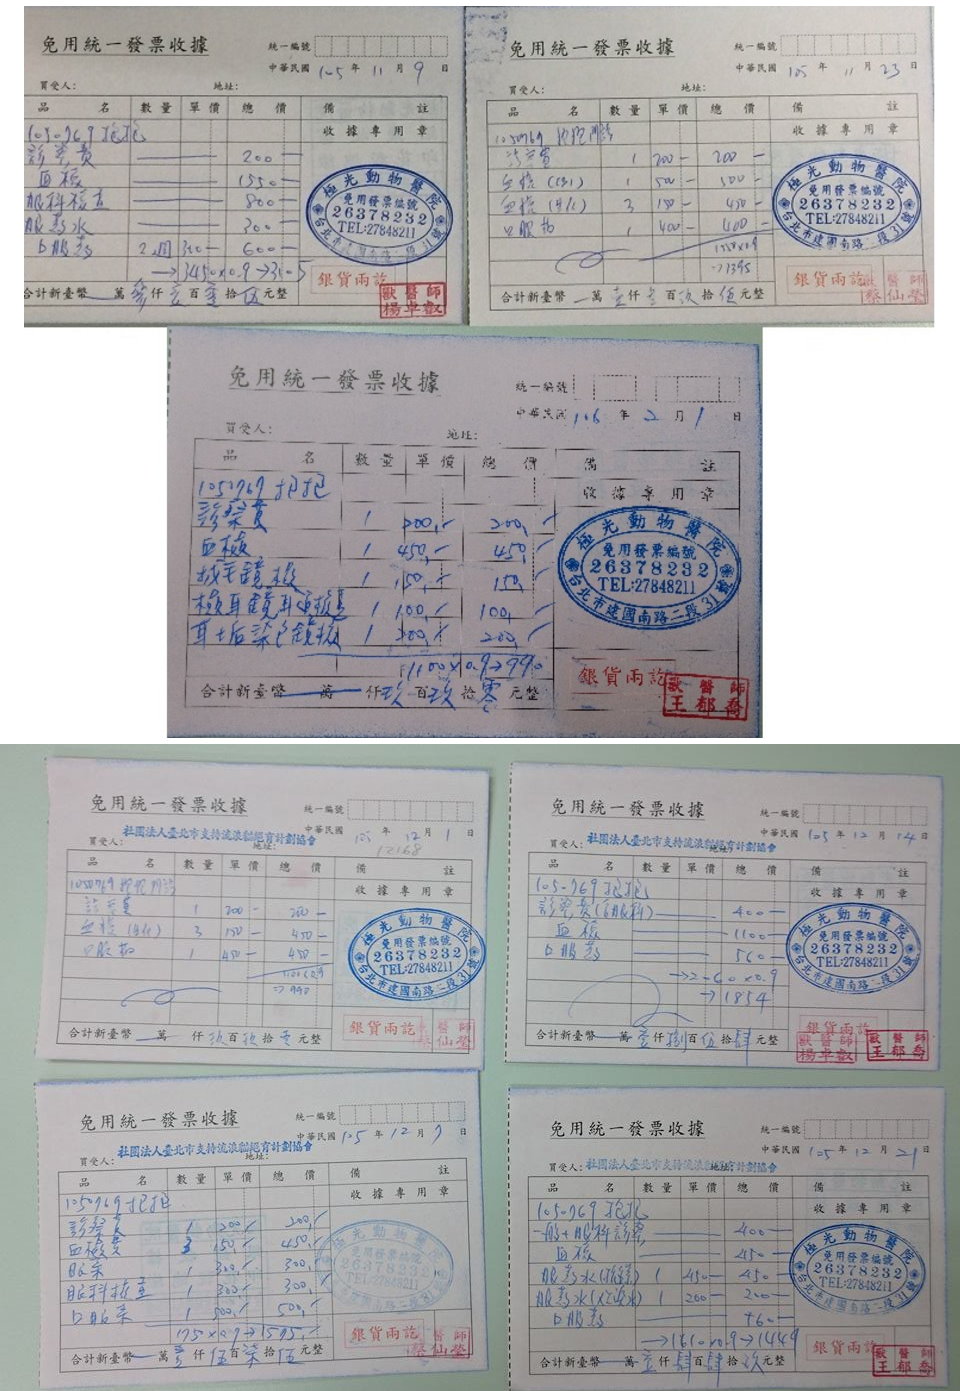 免用統一發票收據
統一編號
中華民國 105 年 11 月 9 日
買受人: 地址:
品名 數量 單價 總價 備註
1050769 抱抱
收據專用章
診察費 200
血檢 1550
眼科檢查 800
眼藥水 300
口服藥 2週 300 600
→3450×0.9→3105
極光動物醫院
免用發票編號
26378232
TEL:27848211
台北市建國南路二段31號
合計新臺幣 萬 參仟壹百零拾伍元整
銀貨兩訖
獸醫師
楊卓叡
免用統一發票收據
統一編號
中華民國 105 年 11 月 23 日
買受人: 地址:
品名 數量 單價 總價 備註
1050769 抱抱
收據專用章
1 200 200
血檢 (CBC) 1 500 500
血檢 (生化) 3 150 450
口服藥 1 400 400
→1395
極光動物醫院
免用發票編號
26378232
TEL:27848211
台北市建國南路二段31號
合計新臺幣 萬 壹仟參百玖拾伍元整
銀貨兩訖
獸醫師
蔡仙瑩
免用統一發票收據
統一編號
中華民國 106 年 2 月 1 日
買受人: 地址:
品名 數量 單價 總價 備註
1050769 抱抱
收據專用章
診察費 1 200 200
血檢 1 450 450
拔毛鏡檢 1 150 150
檢耳鏡耳道檢查 1 100 100
耳土后染色鏡檢 1 200 200
1100×0.9→990
極光動物醫院
免用發票編號
26378232
TEL:27848211
台北市建國南路二段31號
合計新臺幣 萬 仟玖百玖拾零元整
銀貨兩訖
獸醫師
王郁喬
免用統一發票收據
統一編號
中華民國 105 年 12 月 1 日
12168
社團法人臺北市支持流浪貓絕育計劃協會
買受人: 地址:
品名 數量 單價 總價 備註
1050769 抱抱
收據專用章
1 200 200
血檢 (生化) 3 150 450
口服藥 1 450 450
→990
極光動物醫院
免用發票編號
26378232
TEL:27848211
台北市建國南路二段31號
合計新臺幣 萬 仟玖百玖拾零元整
銀貨兩訖
獸醫師
蔡仙瑩
免用統一發票收據
統一編號
中華民國 105 年 12 月 14 日
社團法人臺北市支持流浪貓絕育計劃協會
買受人: 地址:
品名 數量 單價 總價 備註
1050769 抱抱
收據專用章
診察費(含眼科) 400
血檢 1100
口服藥 560
→2060×0.9
→1854
極光動物醫院
免用發票編號
26378232
TEL:27848211
台北市建國南路二段31號
合計新臺幣 萬 壹仟捌百伍拾肆元整
銀貨兩訖
獸醫師
楊卓叡
獸醫師
王郁喬
免用統一發票收據
統一編號
中華民國 105 年 12 月 7 日
社團法人臺北市支持流浪貓絕育計劃協會
買受人: 地址:
品名 數量 單價 總價 備註
1050769 抱抱
收據專用章
診察費 1 200 200
血檢費 3 150 450
眼藥 1 300 300
眼科檢查 1 300 300
口服藥 1 500 500
×0.9→1575
極光動物醫院
免用發票編號
26378232
TEL:27848211
台北市建國南路二段31號
合計新臺幣 萬 壹仟伍百柒拾伍元整
銀貨兩訖
獸醫師
蔡仙瑩
免用統一發票收據
統一編號
中華民國 105 年 12 月 21 日
社團法人臺北市支持流浪貓絕育計劃協會
買受人: 地址:
品名 數量 單價 總價 備註
1050769 抱抱
收據專用章
一般+眼科診察 400
血檢 450
眼藥水 1 450 450
眼藥水 1 200 200
口服藥
→1610×0.9→1449
極光動物醫院
免用發票編號
26378232
TEL:27848211
台北市建國南路二段31號
合計新臺幣 萬 壹仟肆百肆拾玖元整
銀貨兩訖
獸醫師
王郁喬